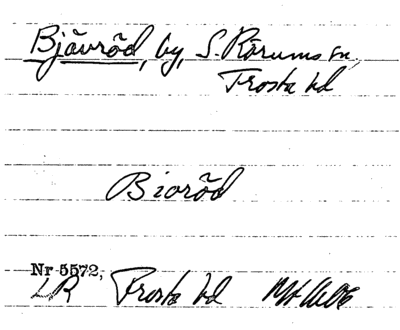 Bjävröd, by, S. Rörums sn,
Frosta hd
Bioröd
Nr 5572,
LR Frosta hd